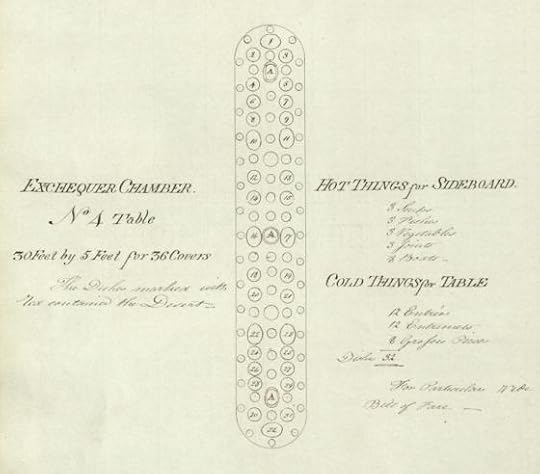 EXCHEQUER CHAMBER.
No 4 Table
30 Feet by 5 Feet for 36 Covers
The Dishes marked with
contained the Desert
1
2 3
A
4 5
6 7
8 9
10 11
12 13
14 15
16 A 17
18 19
20 21
A
HOT THINGS for SIDEBOARD.
3 Soups
3 Fishes
3 Vegetables
3 Joints
COLD THINGS for TABLE
12 Entrées
12 Entremets
8 Grosses Pièces
Dishes 32
For Particulars
Bill of Fare